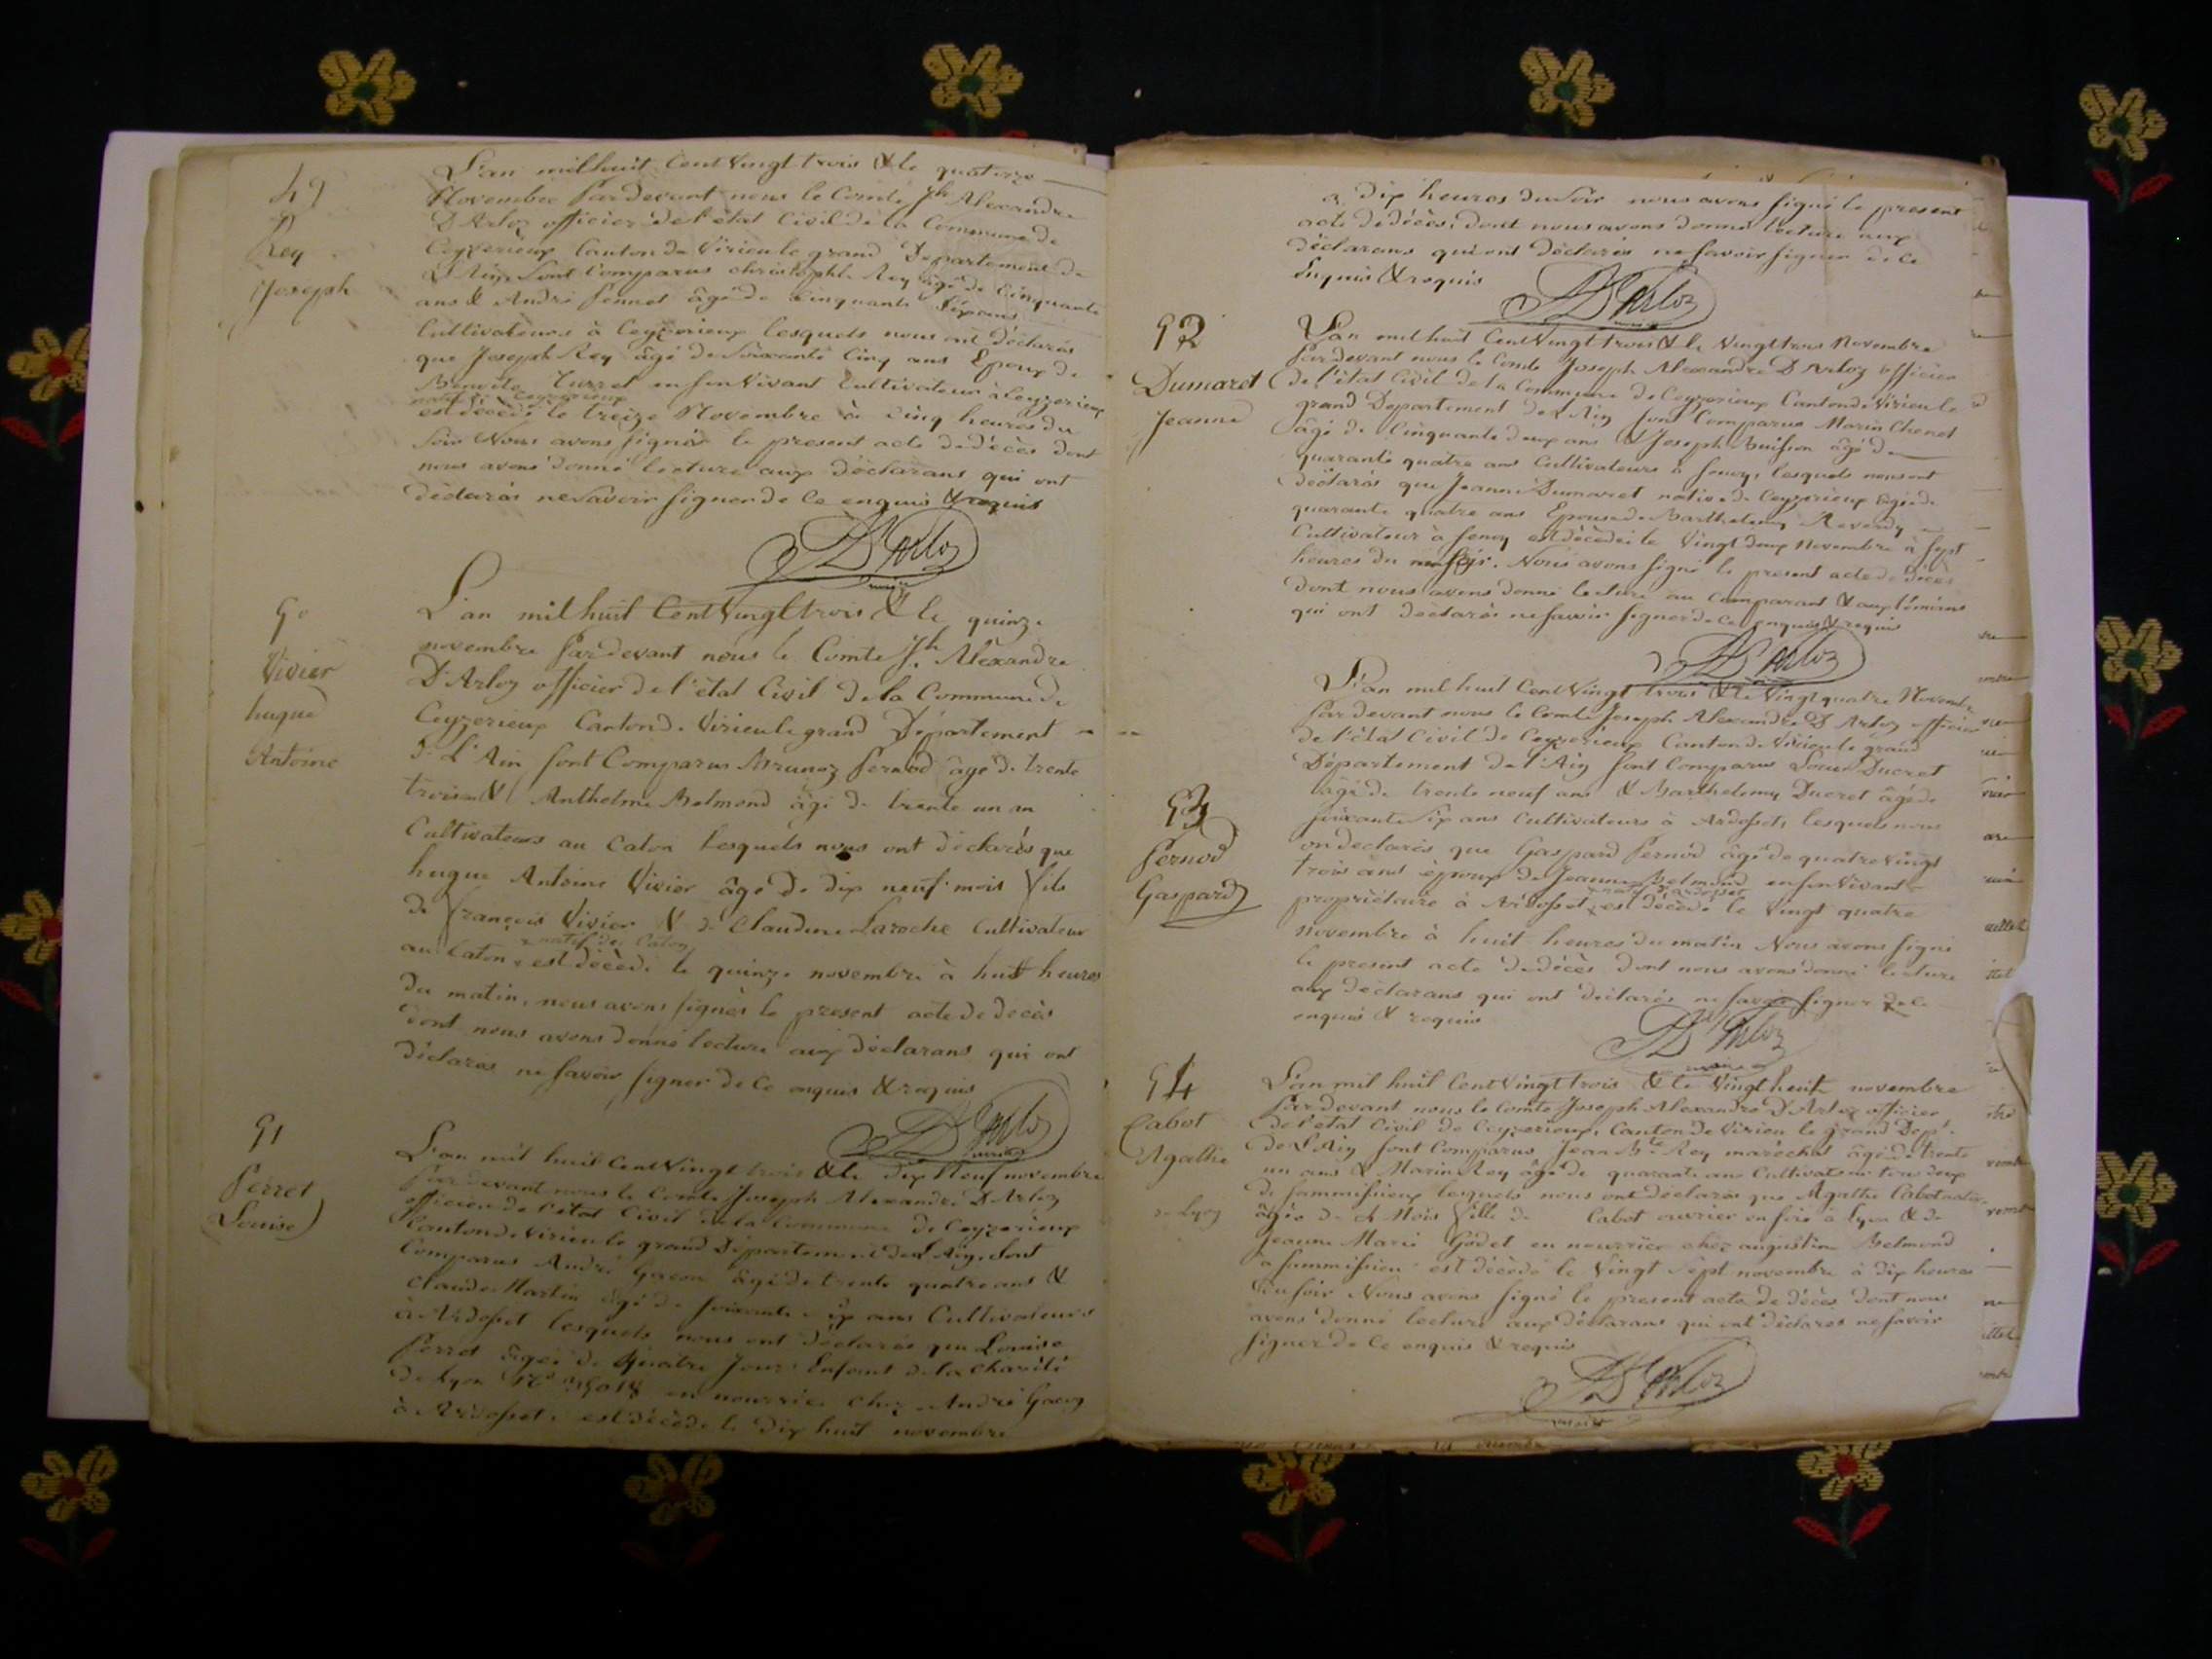 49
Rey
Joseph
L'an mil huit Cent Vingt trois & le quatorze
Novembre Pardevant nous le Comte Jh Alexandre
D'Arloz officier de l'état Civil de la Commune de
Ceyzerieux Canton de Virieu le grand Departement de
L'Ain, Sont Comparus christophle Rey âgé de Cinquante
ans & André Pennet âgé de Cinquante Six ans
Cultivateurs à Ceyzerieux lesquels nous ont déclarés
que Joseph Rey âgé de Soixante Cinq ans Epoux de
Benoite Turrel en son Vivant Cultivateur à Ceyzerieux
natif de Ceyzerieux
est décédé le treize Novembre à Cinq heures du
Soir Nous avons signés le present acte de décès dont
nous avons donné lecture aux déclarans qui ont
déclarés ne Savoir signer de Ce enquis & requis
D'Arloz
maire
50
Vivier
hugue
Antoine
L'an mil huit Cent Vingt trois & le quinze
novembre Pardevant nous le Comte Jh Alexandre
D'Arloz officier de l'état Civil de la Commune de
Ceyzerieux Canton de Virieu le grand Département
de L'Ain sont Comparus Brunoz Pernod âgé de trente
trois & Anthelme Belmond âgé de trente un an
Cultivateurs au Caton lesquels nous ont déclarés que
hugue Antoine Vivier âgé de dix neuf mois fils
de françois Vivier & de Claudine Laroche Cultivateur
natif du Caton
au Caton est décédé le quinze novembre à huit heures
du matin, nous avons signés le present acte de decès
dont nous avons donné lecture aux déclarans qui ont
déclarés ne savoir signer de Ce enquis & requis
D'Arloz
maire
51
Perret
Louise
L'an mil huit Cent Vingt trois & le dix Neuf novembre
Pardevant nous le Comte Joseph Alexandre D'Arloz
officier de l'état Civil de la Commune de Ceyzerieux
Canton de Virieu le grand Département de L'Ain, Sont
Comparus André Gacon âgé de trente quatre ans &
Claude Martin âgé de soixante six ans Cultivateurs
à Ardosset lesquels nous ont déclarés que Louise
Perret âgée de Quatre Jours Enfant de la Charité
de Lyon en nourrice chez André Gacon
à Ardosset, est décédé le dix huit novembre
à dix heures du Soir nous avons signé le present
acte de décès, dont nous avons donné lecture aux
déclarans qui ont déclarés ne savoir signer de Ce
Enquis & requis
D'Arloz
maire
52
Dumaret
Jeanne
L'an mil huit Cent Vingt trois & le Vingt trois Novembre
Pardevant nous le Comte Joseph Alexandre D'Arloz officier
de l'état Civil de la Commune de Ceyzerieux Canton de Virieu le
grand Departement de L'Ain sont Comparus Marin Chenet
âgé de Cinquante deux ans & Joseph Buisson âgé de
quarante quatre ans Cultivateurs à fenoy, lesquels nous ont
déclarés que Jeanne Dumaret native de Ceyzerieux âgée de
quarante quatre ans Epouse de Barthelemy Reverdy
Cultivateur à fenoy est décédée le Vingt deux Novembre à Sept
heures du soir. Nous avons signé le present acte de décès
dont nous avons donné lecture au Comparant & aux témoins
qui ont déclarés ne savoir signer de Ce enquis & requis
D'Arloz
53
Pernod
Gaspard
L'an mil huit Cent Vingt trois & le Vingt quatre Novembre
Pardevant nous le Comte Joseph Alexandre D'Arloz officier
de l'état Civil de Ceyzerieux Canton de Virieu le grand
Département de l'Ain sont Comparus Ducret
âgé de trente neuf ans & Barthelemy Ducret âgé de
soixante Six ans Cultivateurs à Ardosset, lesquels nous
on declarés que Gaspard Pernod âgé de quatre Vingt
trois ans époux de Jeanne Belmond en son Vivant
natif d'Ardosset
propriétaire à Ardosset, est décédé le Vingt quatre
novembre à huit heures du matin Nous avons signé
le present acte de décès dont nous avons donné lecture
aux déclarans qui ont déclarés ne savoir signer de Ce
enquis & requis
D'Arloz
maire
54
Cabot
Agathe
de Lyon
L'an mil huit Cent Vingt trois & le Vingt huit novembre
Pardevant nous le Comte Joseph Alexandre D'Arloz officier
de l'état Civil de Ceyzerieux, Canton de Virieu le grand Dept.
de L'Ain sont Comparus Jean Bte Rey maréchal âgé de trente
un ans & Marin Rey âgé de quarante ans Cultivateur tous deux
de sammissieux lesquels nous ont déclarés que Agathe Cabot
âgée de Mois fille de Cabot ouvrier en soie à Lyon & de
Jeanne Marie Godet en nourrice chez augustin Belmond
à sammissieu est décédé le Vingt sept novembre à dix heures
du soir Nous avons signé le present acte de décès dont nous
avons donné lecture aux déclarans qui ont déclarés ne savoir
signer de Ce enquis & requis
D'Arloz
maire